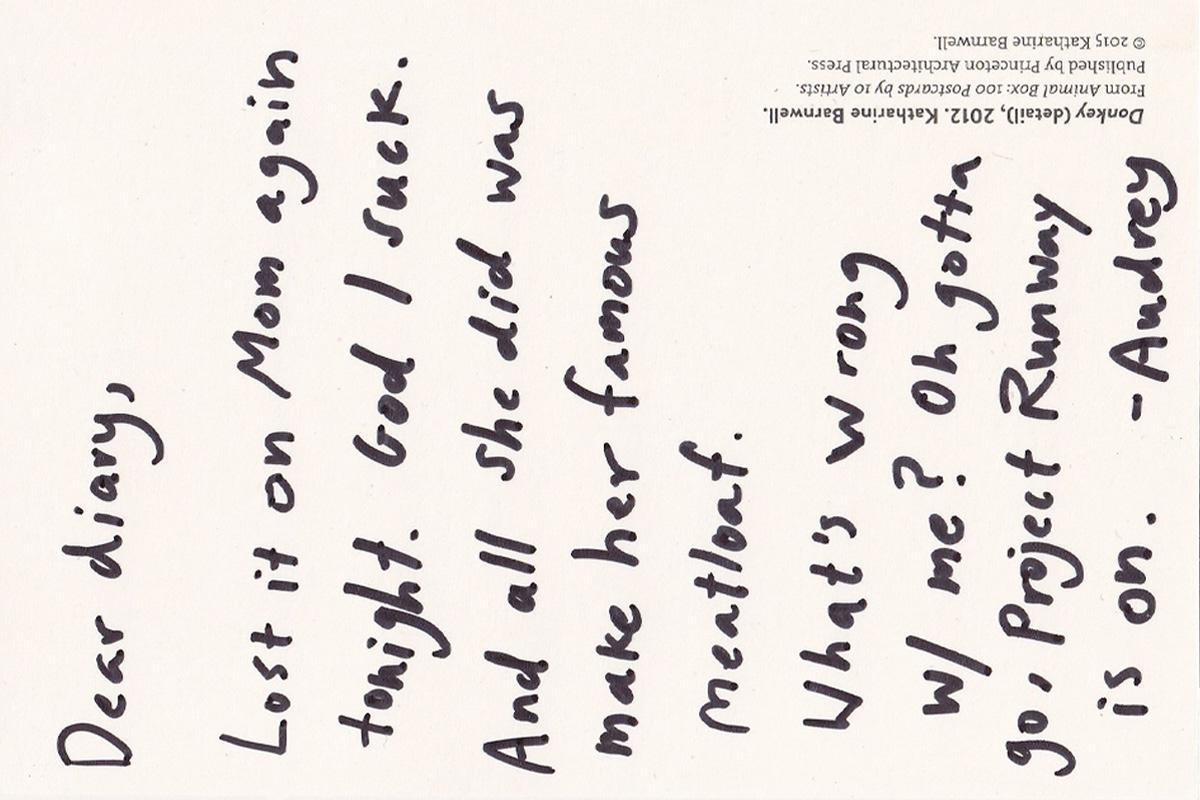 Dear diary,
Lost it on Mom again
tonight. God I suck.
And all she did was
make her famous
meatloaf.
What's wrong
w/ me? Oh gotta
go, Project Runway
is on. -Audrey
Donkey (detail), 2012. Katharine Barnwell.
From Animal Box: 100 Postcards by 10 Artists.
Published by Princeton Architectural Press.
© 2015 Katharine Barnwell.